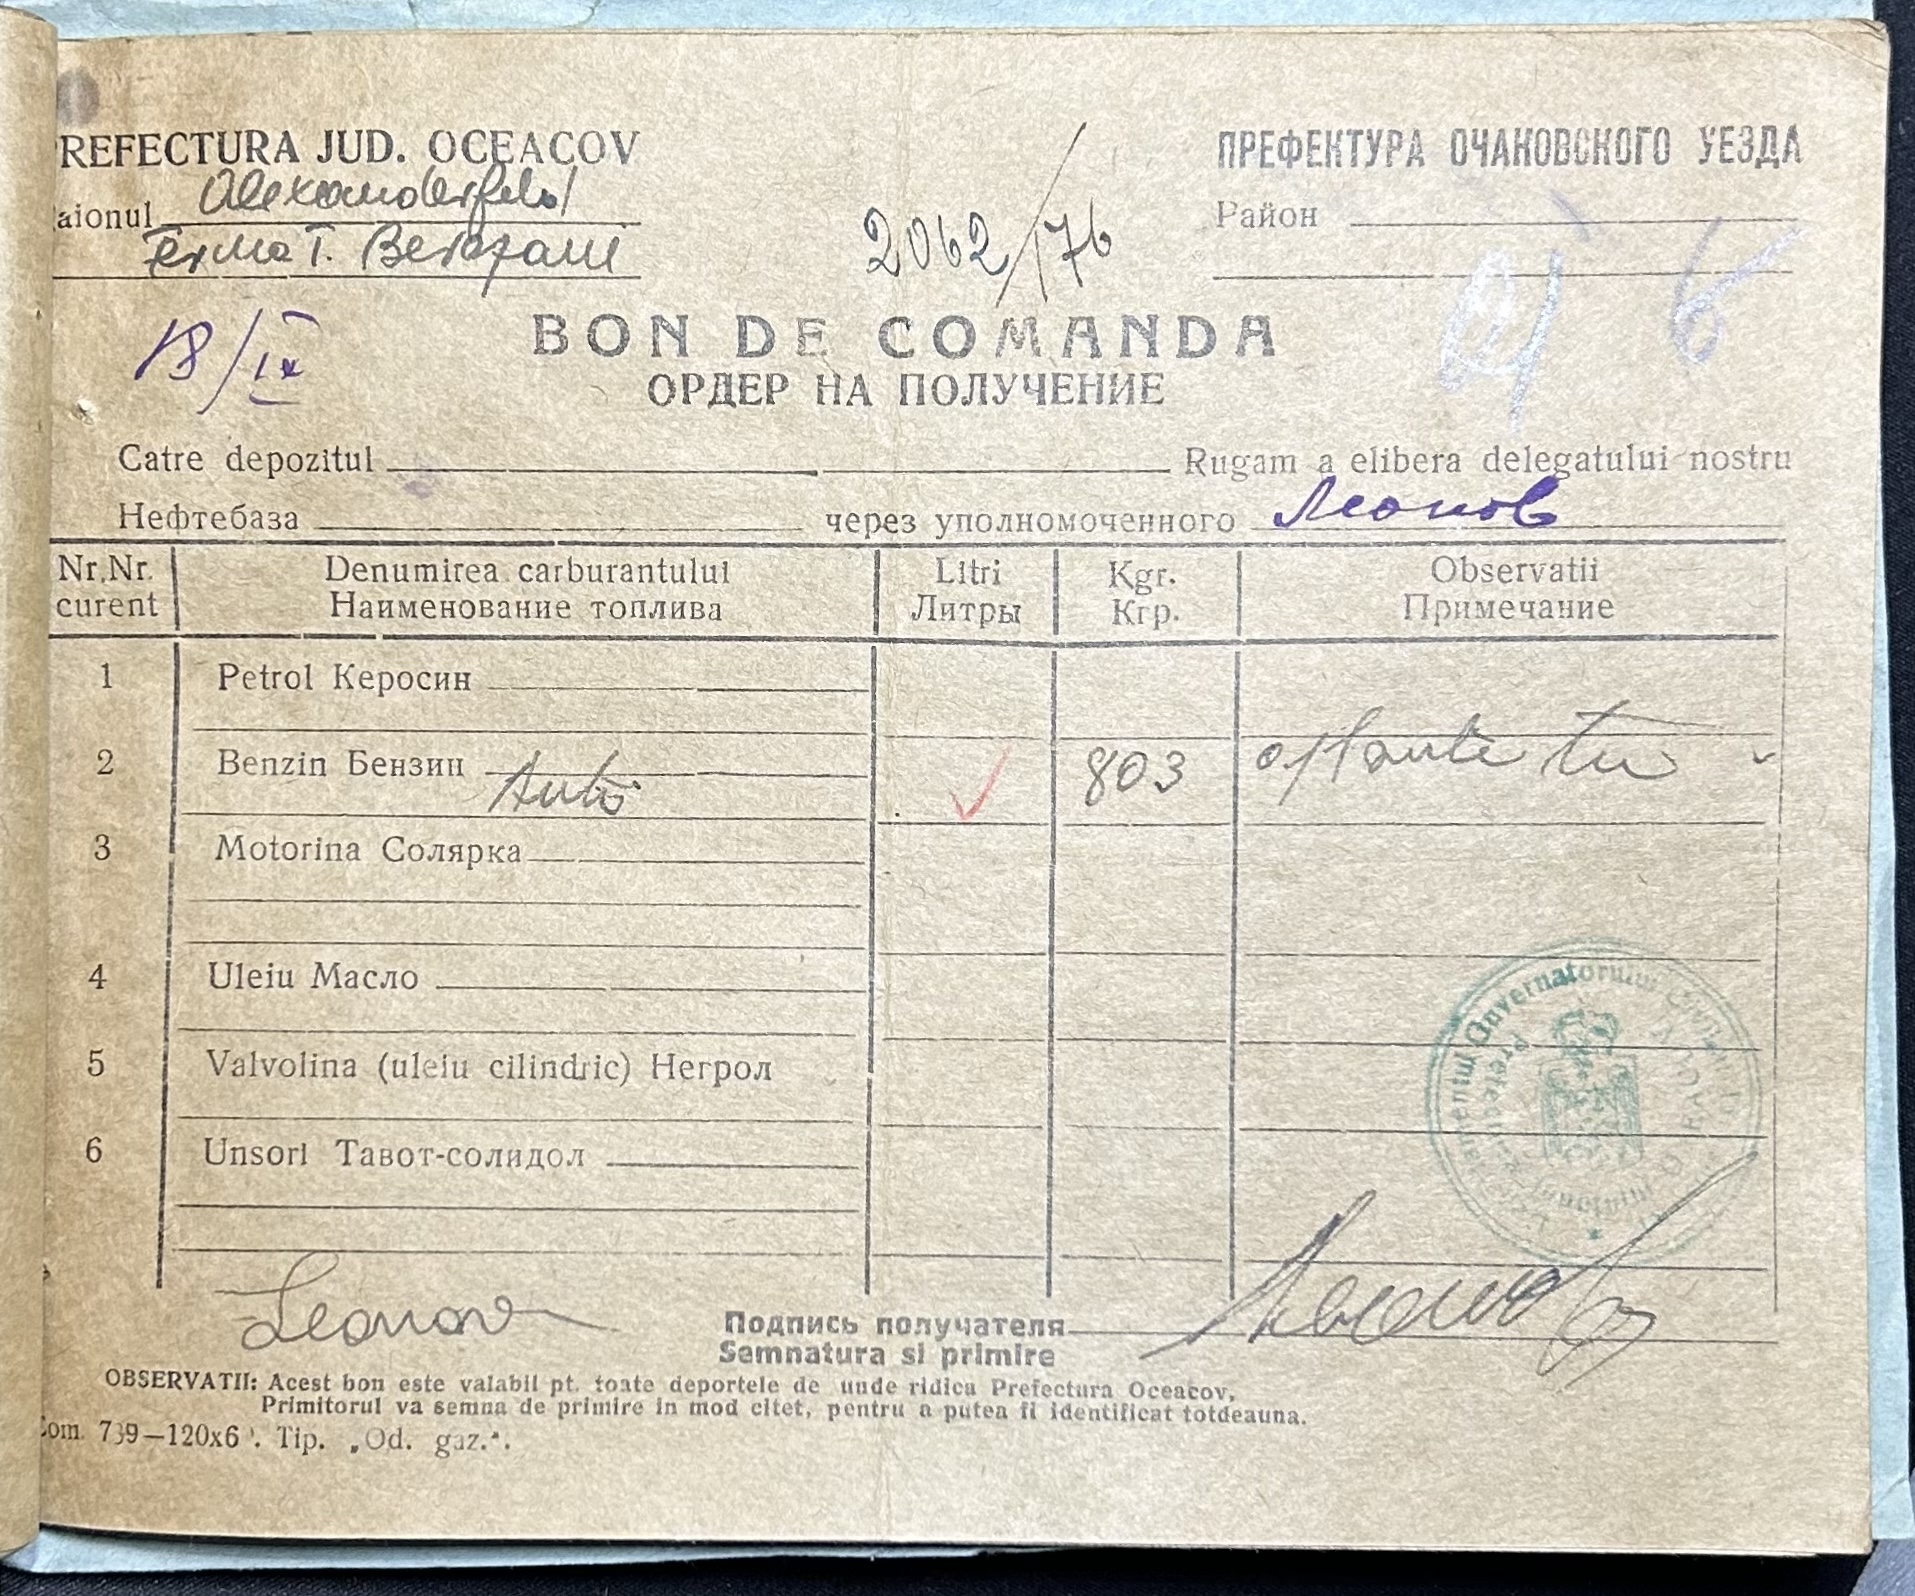 PREFECTURA JUD. OCEACOV
ПРЕФЕКТУРА ОЧАКОВСКОГО УЕЗДА
Raionul Alexanderfeld
Район
Ferma T.
2062/176
18/IX
21 6
BON DE COMANDA
ОРДЕР НА ПОЛУЧЕНИЕ
Catre depozitul Rugam a elibera delegatului nostru
Нефтебаза через уполномоченного Леонов
Nr.Nr. Denumirea carburantului Litri Kgr. Observatii
curent Наименование топлива Литры Кгр. Примечание
1 Petrol Керосин
2 Benzin Бензин Auto 803 optsute trei
3 Motorina Солярка
4 Uleiu Масло
5 Valvolina (uleiu cilindric) Негрол
6 Unsori Тавот-солидол
Guvernatorului Civil
Leonov Подпись получателя Леонов
Semnatura si primire
OBSERVATII: Acest bon este valabil pt. toate deportele de unde ridica Prefectura Oceacov.
Primitorul va semna de primire in mod citet, pentru a putea fi identificat totdeauna.
Com. 739—120x6 . Tip. „Od. gaz.".